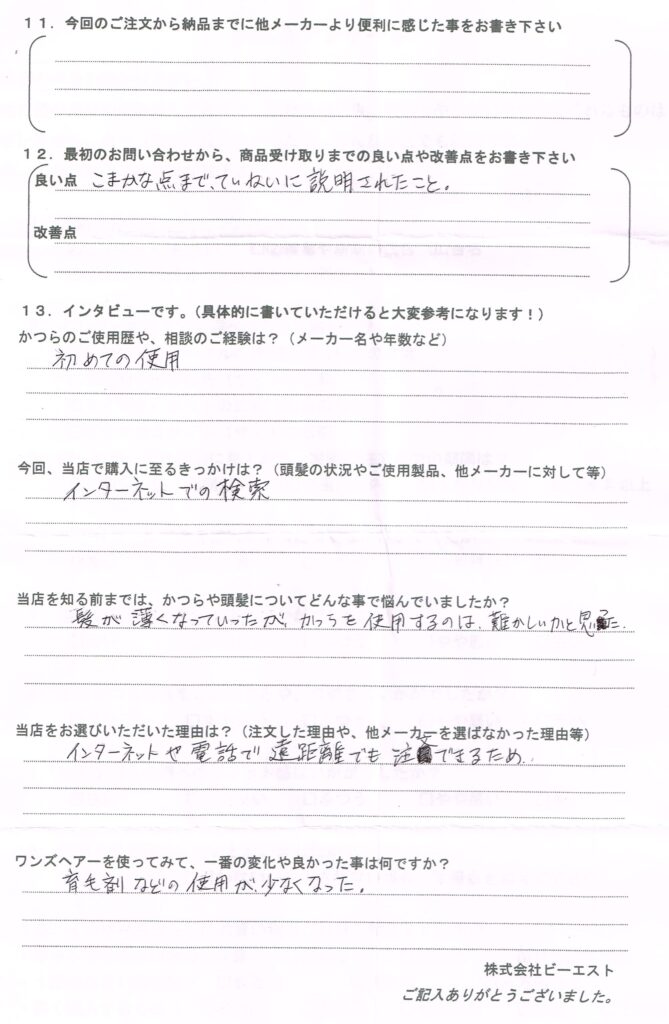 １１．今回のご注文から納品までに他メーカーより便利に感じた事をお書き下さい
１２．最初のお問い合わせから、商品受け取りまでの良い点や改善点をお書き下さい
良い点 こまかな点まで、ていねいに説明されたこと。
改善点
１３．インタビューです。（具体的に書いていただけると大変参考になります！）
かつらのご使用歴や、相談のご経験は？（メーカー名や年数など）
初めての使用
今回、当店で購入に至るきっかけは？（頭髪の状況やご使用製品、他メーカーに対して等）
インターネットでの検索
当店を知る前までは、かつらや頭髪についてどんな事で悩んでいましたか？
髪が薄くなっていったが、かつらを使用するのは、難かしいかと思った.
当店をお選びいただいた理由は？（注文した理由や、他メーカーを選ばなかった理由等）
インターネットや電話で遠距離でも注文できるため.
ワンズヘアーを使ってみて、一番の変化や良かった事は何ですか？
育毛剤などの使用が少なくなった.
株式会社ビーエスト
ご記入ありがとうございました。